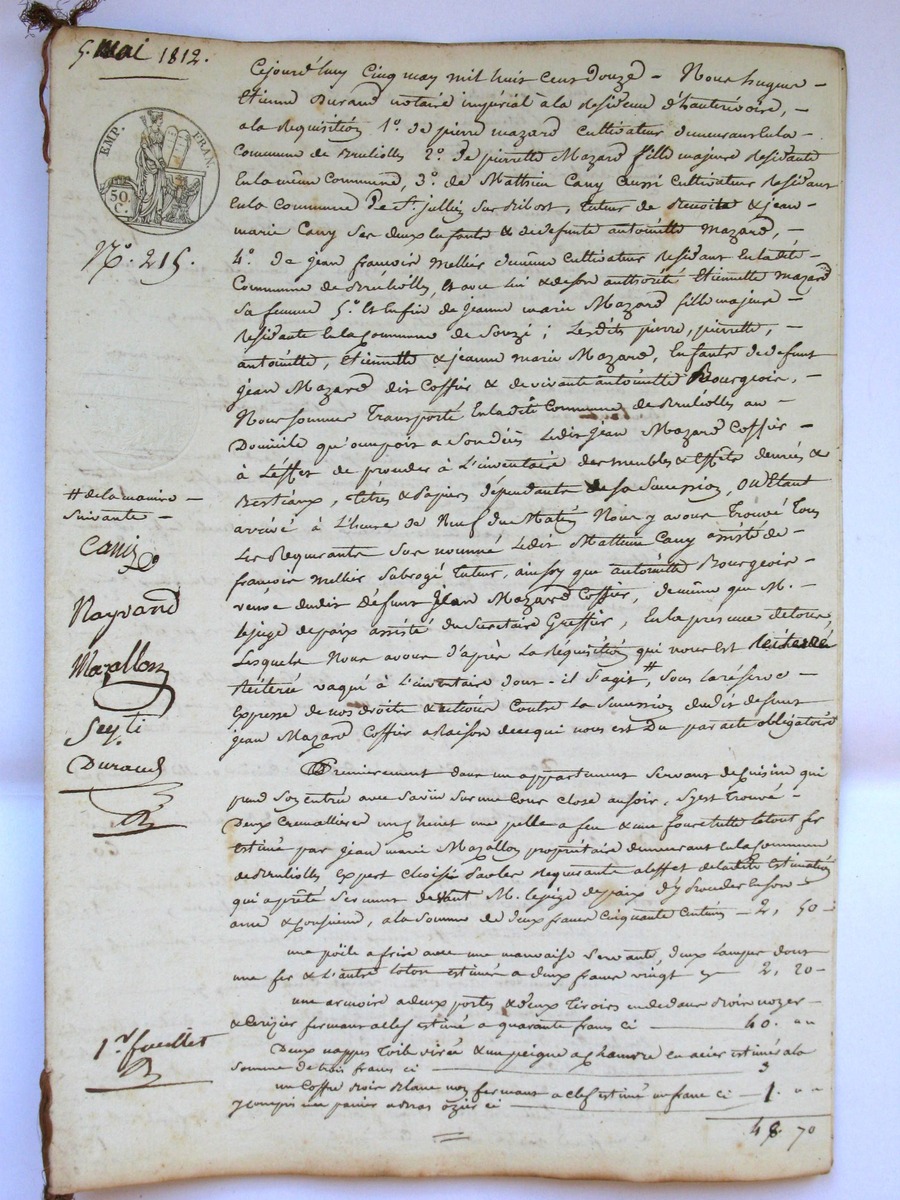 5. Mai 1812.
EMP. FRAN.
50. C.
N.º 215.
Cejourd'huy Cinq may mil huit cent douze – Nous hugue –
Etienne Durand notaire impérial à la Residence d'hauterivoire, –
a la Requisition 1º. de pierre mazard cultivateur demeurant en la –
Commune de Brulliolles 2º. de pierrette Mazard fille majeure Residante
En la même Commune, 3º. de Mathieu Cany aussi Cultivateur Residant
En la Commune de St. jullien sur Bibost, tuteur de Benoite & jeanne
marie Cany ses deux Enfants & de defunte antoinette mazard, –
4º. de jean françois mellier du même cultivateur Residant En la dite
Commune de Brulliolles, et avec lui & de son authorité Etiennette mazard
Sa femme 5º. et Enfin de jeanne marie Mazard fille majeure –
Residante En la Commune de Souzi; Lesdits pierre, pierrette, –
antoinette, Etiennette & jeanne marie Mazard, Enfants de defunt
jean Mazard dit Coffier & de vivante antoinette Bourgeois, –
Nous sommes Transporté En la dite Commune de Brulliolles au –
Domicile qu'occupoit a son décès Ledit jean Mazard Coffier –
à L'effet de proceder à L'inventaire des meubles & Effets denrées &
Bestiaux, titres & papiers dépendants de sa succession, ou Etant
arrivé à L'heure de Neuf du Matin Nous y avons Trouvé Tous
Les Requerants sus nommé Ledit Mathieu Cany assisté de –
françois mellier subrogé tuteur, ainsy que antoinette Bourgeois –
veuve dudit défunt jean Mazard Coffier, de même que M. –
Le juge de paix assisté du Secretaire Greffier, En la presence de tous
Lesquels Nous avons d'après La requisition qui nous est Reiteréé
Réiterée vaqué à L'inventaire dont-il s'agit #, sous la réserve –
Expresse de nos droits & actions Contre La Succession dudit defunt
jean Mazard Coffier a Raison de ce qui nous est Du par acte obligatoire
# de la maniere –
suivante –
Caniz
Nayrand
Mazallon
Seyti
Durand
Premierement dans un appartement servant de Cuisine qui
prend son entrée avec sur une Cour close au soir, s'y est trouvé –
Deux Cremallieres un une pelle a feu & une fourchette le tout fer
Estimé par jean marie Mazallon propriétaire demeurant En la Commune
de Brulliolles Expert choisi par les Requerants a l'effet de la dite Estimation
qui a prêté serment devant M. Le juge de paix d'y proceder En son
ame & Conscience, a la somme de deux francs Cinquante Centimes – 2, 50 –
une poële a frire avec une mauvaise Servante, deux Lampes dont
une fer & L'autre loton estimés a deux francs vingt c 2, 20 –
une armoire a deux portes & deux tiroirs en dedans Bois noyer –
& Cerizier fermant a clef estimé a quarante francs ci – 40. „ „
Deux nappes Toile & un peigne a chanvre en acier estimés a la
somme de trois francs ci – 3
un Coffre Bois Blanc fermant a clef estimé un franc ci – 1. „ „
y compris un panier a ozier ci
48, 70
1er. feuillet